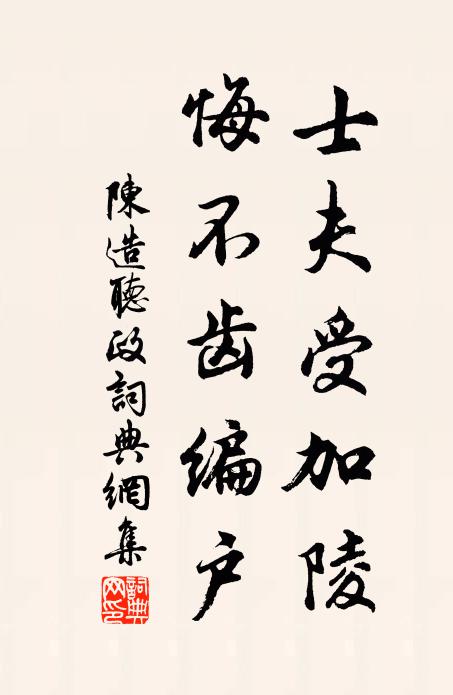 士夫受加陵
悔不齿编户
陳造聽政詞典網集
詞典网印